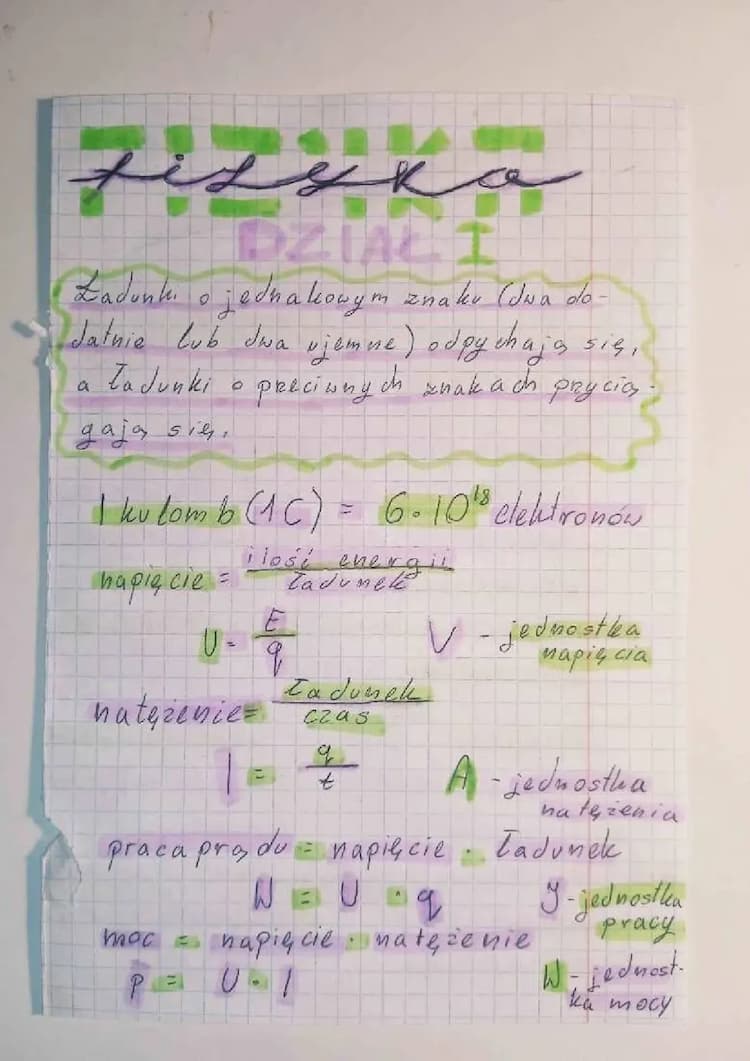 FIZYKA
fizyka
DZIAŁ I
Ładunki o jednakowym znaku (dwa do-
datnie lub dwa ujemne) odpychają się,
a ładunki o preciwnych znakach przycią-
gają się.
1 kulomb (1C) = 6·10¹⁸ elektronów
napięcie = ilość energii / ładunek
U = E / q V - jednostka napięcia
natężenie = ładunek / czas
I = q / t A - jednostka natężenia
praca prądu = napięcie · ładunek
W = U · q J - jednostka pracy
moc = napięcie · natężenie
P = U · I W - jednost-
ka mocy